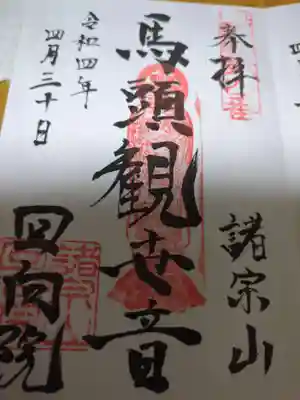 奉拝
諸宗山
馬頭観世音
回向院
令和四年
四月三十日